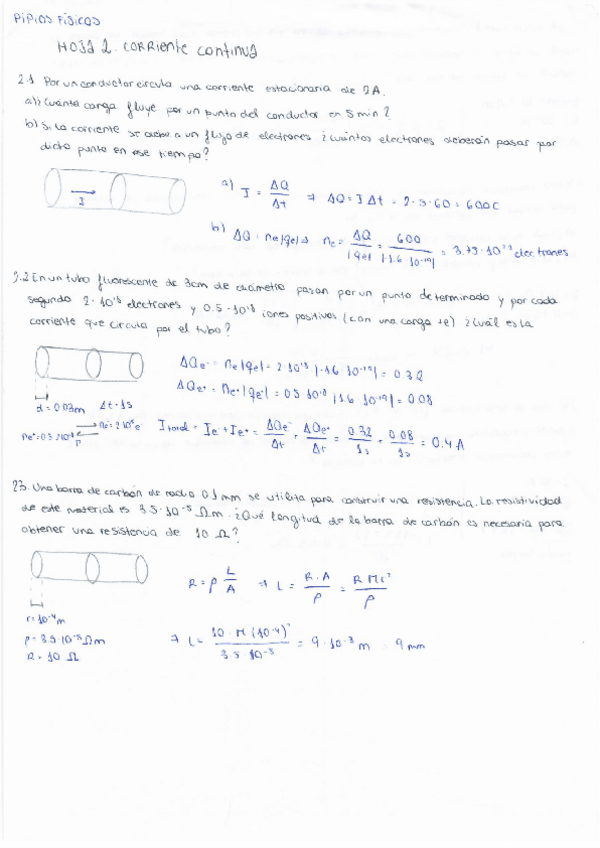 PIPIOS FÍSICOS
HOJA 2. CORRIENTE CONTINUA
2.1 Por un conductor circula una corriente estacionaria de 2A.
a) ¿Cuánta carga fluye por un punto del conductor en 5 min?
b) Si la corriente se debe a un flujo de electrones ¿cuántos electrones deberán pasar por
dicho punto en ese tiempo?
I
a) I = ΔQ/Δt ⇒ ΔQ = I Δt = 2·5·60 = 600C
b) ΔQ = ne|qe| ⇒ ne = ΔQ/|qe| = 600/|-1.6·10⁻¹⁹| = 3.75·10²¹ electrones
2.2 En un tubo fluorescente de 3cm de diámetro pasan por un punto determinado y por cada
segundo 2·10¹⁸ electrones y 0.5·10¹⁸ iones positivos (con una carga +e) ¿Cuál es la
corriente que circula por el tubo?
ΔQe⁻ = ne|qe| = 2·10¹⁸|-1.6·10⁻¹⁹| = 0.32
ΔQe⁺ = ne⁺|qe⁺| = 0.5·10¹⁸|1.6·10⁻¹⁹| = 0.08
d = 0.03m Δt = 1s
ne⁻ = 2·10¹⁸e
ne⁺ = 0.5·10¹⁸ p
Itotal = Ie⁻ + Ie⁺ = ΔQe⁻/Δt + ΔQe⁺/Δt = 0.32/1s + 0.08/1s = 0.4 A
2.3. Una barra de carbón de radio 0.1 mm se utiliza para construir una resistencia. La resistividad
de este material es 3.5·10⁻⁵ Ωm. ¿Qué longitud de la barra de carbón es necesaria para
obtener una resistencia de 10 Ω?
R = ρ L/A ⇒ L = R·A/ρ = RΠr²/ρ
r = 10⁻⁴m
ρ = 3.5·10⁻⁵Ωm
R = 10 Ω
⇒ L = 10·Π(10⁻⁴)²/3.5·10⁻⁵ = 9·10⁻³ m = 9 mm